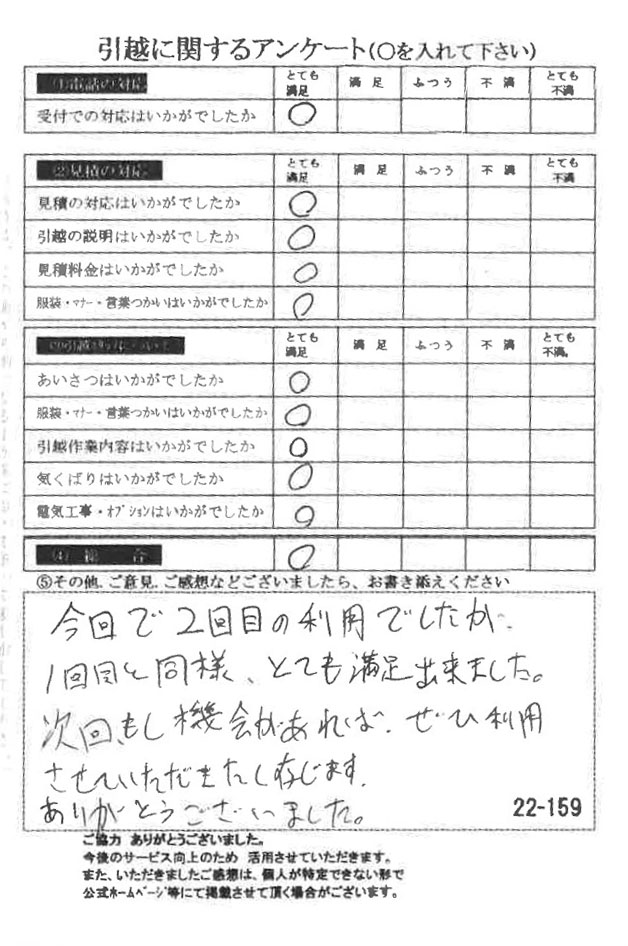 引越に関するアンケート(○を入れて下さい)
とても満足 満足 ふつう 不満 とても不満
受付での対応はいかがでしたか ○
②見積の対応 とても満足 満足 ふつう 不満 とても不満
見積の対応はいかがでしたか ○
引越の説明はいかがでしたか ○
見積料金はいかがでしたか ○
服装・マナー・言葉つかいはいかがでしたか ○
とても満足 満足 ふつう 不満 とても不満
あいさつはいかがでしたか ○
服装・マナー・言葉つかいはいかがでしたか ○
引越作業内容はいかがでしたか ○
気くばりはいかがでしたか ○
電気工事・オプションはいかがでしたか ○
④総合 ○
⑤その他、ご意見、ご感想などございましたら、お書き添えください
今回で2回目の利用でしたが、
1回目と同様、とても満足出来ました。
次回、もし機会があれば、ぜひ利用
させていただきたく存じます。
ありがとうございました。
22-159
ご協力 ありがとうございました。
今後のサービス向上のため 活用させていただきます。
また、いただきましたご感想は、個人が特定できない形で
公式ホームページ等にて掲載させて頂く場合がございます。